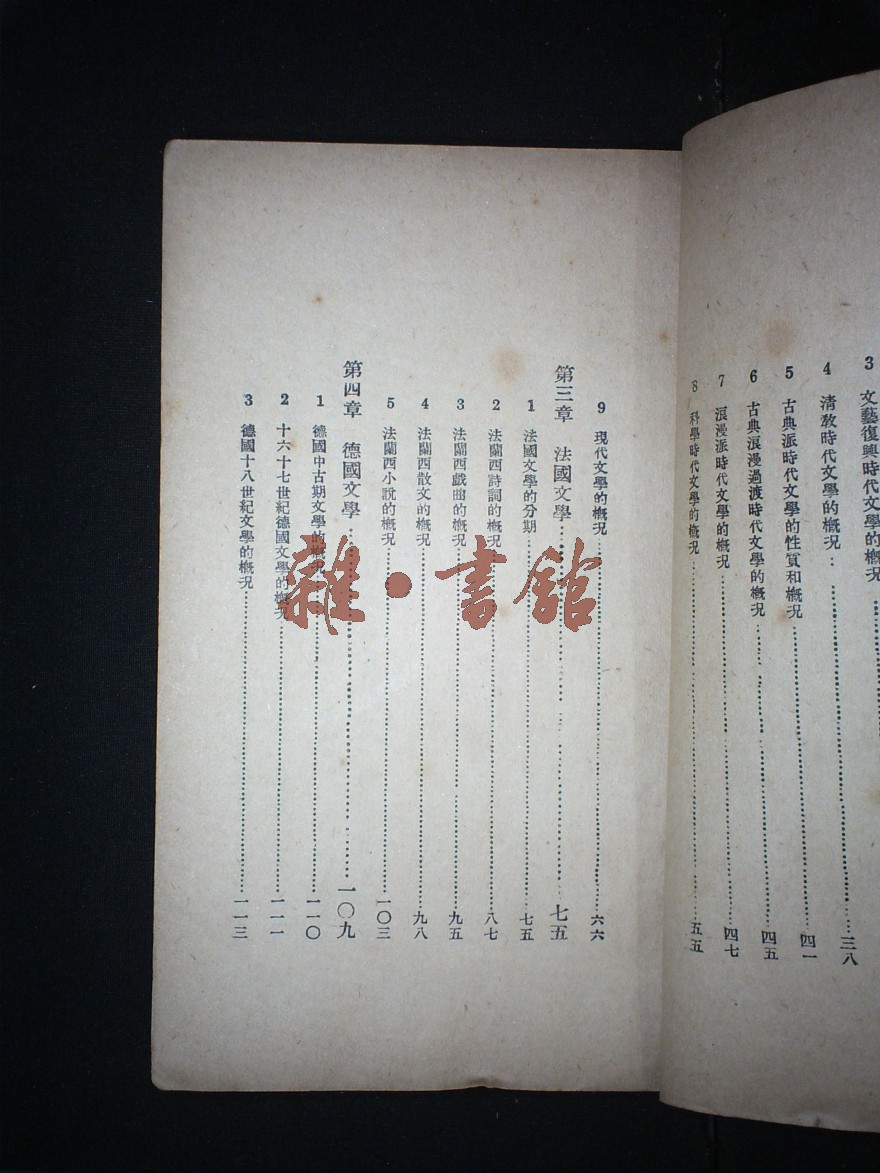 3 文藝復興時代文學的概況
4 清敎時代文學的概況 三八
5 古典派時代文學的性質和概况 四一
6 古典浪漫過渡時代文學的概况 四五
7 浪漫派時代文學的概況 四七
8 科學時代文學的概況 五五
9 現代文學的槪況 六六
第三章 法國文學 七五
1 法國文學的分期 七五
2 法蘭西詩詞的槪况 八七
3 法蘭西戲曲的槪况 九五
4 法蘭西散文的槪況 九八
5 法蘭西小說的槪況 一〇三
第四章 德國文學 一〇九
1 德國中古期文學的槪況 一一〇
2 十六十七世紀德國文學的槪況 一一一
3 德國十八世紀文學的槪况 一一三
雜·書館